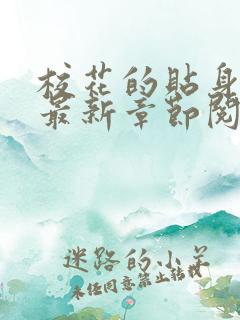 校花的贴身
最新章节阅
迷路的小羊
未经同意禁止转载